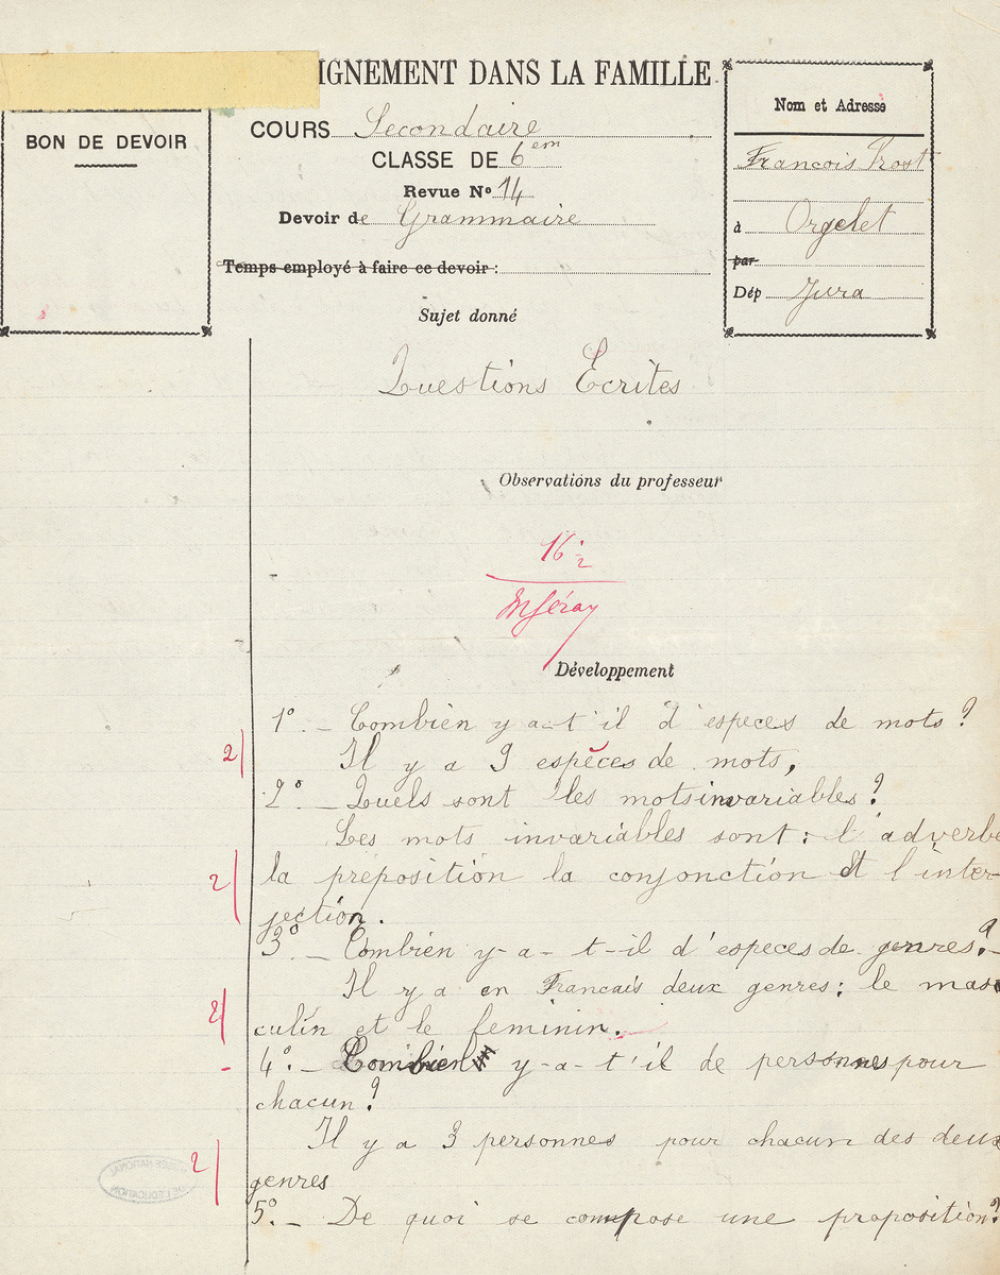 IGNEMENT DANS LA FAMILLE
BON DE DEVOIR
COURS Secondaire
CLASSE DE 6em
Revue No 14
Devoir de Grammaire
Temps employé à faire ce devoir :
Nom et Adresse
Francois Prost
à Orgelet
par
Dép Jura
Sujet donné
Questions Ecrites
Observations du professeur
16 1/2
Développement
1o. - Combien y a-t'il d'especes de mots ?
2
Il y a 9 espèces de mots,
2o. - Quels sont les mots invariables ?
Les mots invariables sont : l'adverbe
2
la préposition la conjonction et l'inter-
jection.
3o - Combien y-a-t-il d'especes de genres ? -
Il y a en Francais deux genres : le mas
2
culin et le feminin.
4o. - Combien y-a-t'il de personnes pour
chacun ?
Il y a 3 personnes pour chacun des deux
2
genres
5o. - De quoi se compose une proposition ?
MUSÉE NATIONAL
DE L'ÉDUCATION